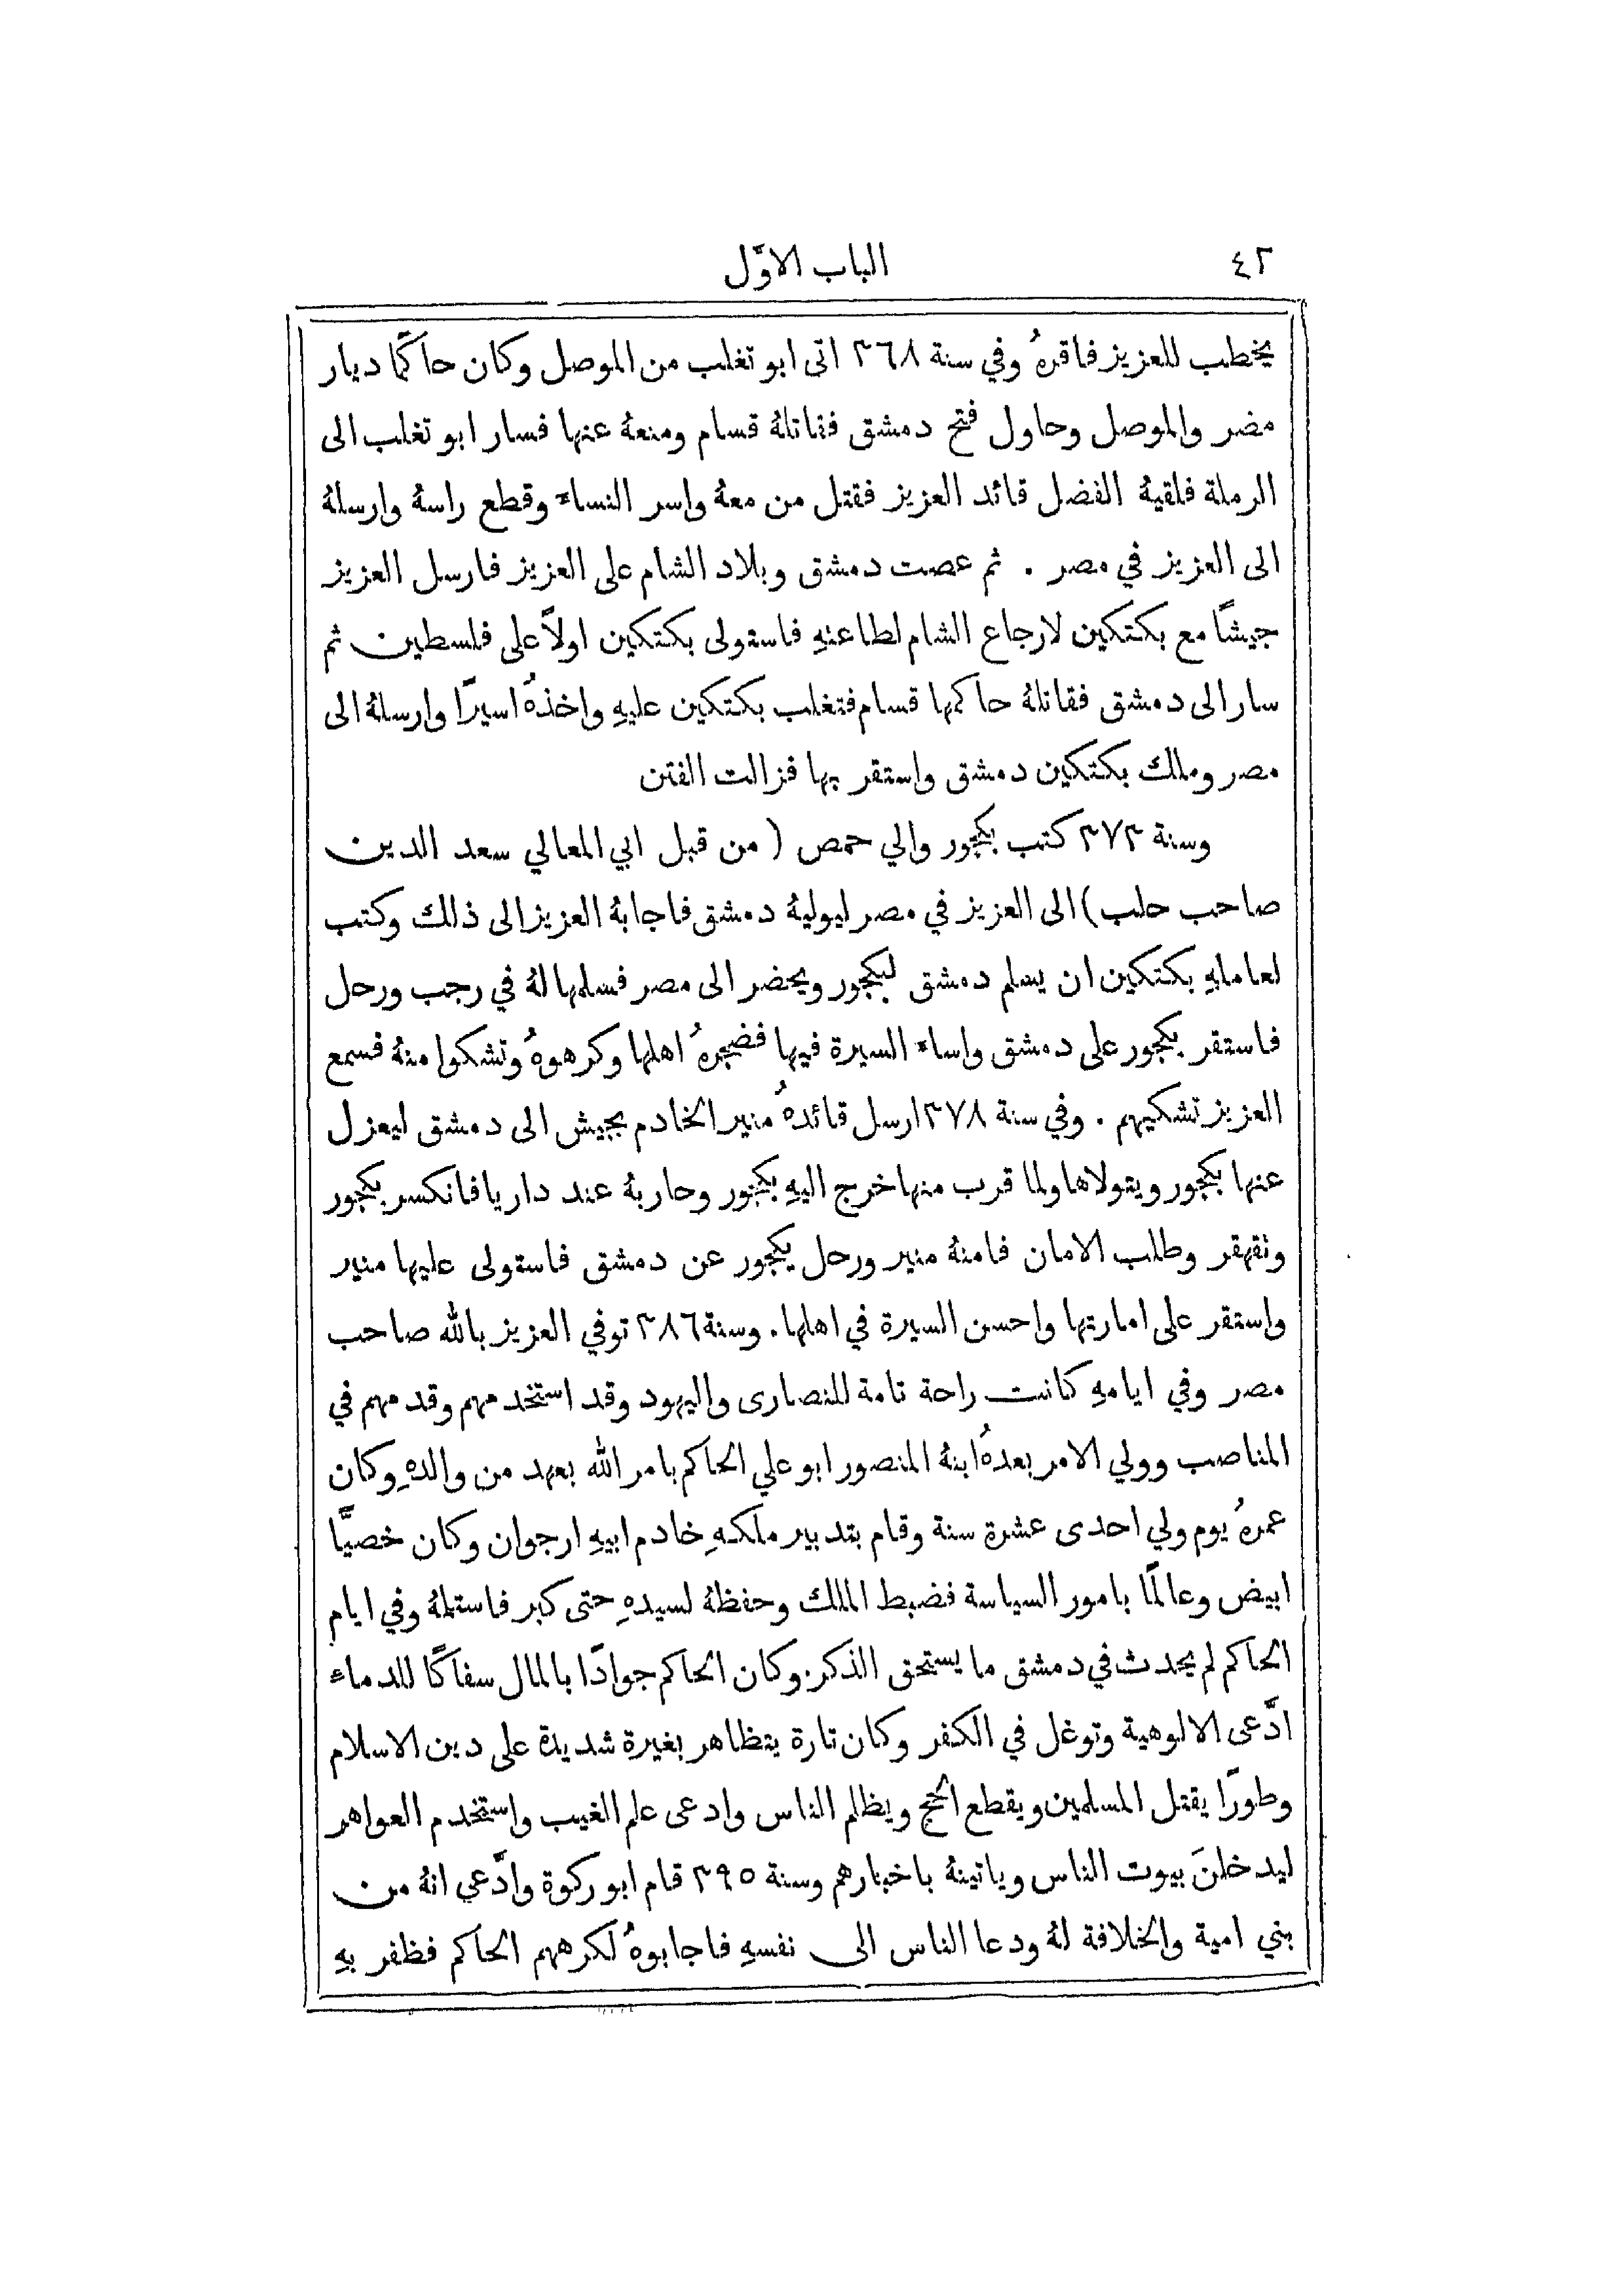 ٤٢
الباب الاوّل
يخطب للعزيز فاقرهُ وفي سنة ٣٦٨ اتى ابو تغلب من الموصل وكان حاكمًا ديار
مضر والموصل وحاول فتح دمشق فقاتلهُ قسام ومنعهُ عنها فسار ابو تغلب الى
الرملة فلقيهُ الفضل قائد العزيز فقتل من معهُ واسر النساء وقطع راسهُ وارسلهُ
الى العزيز في مصر . ثم عصت دمشق وبلاد الشام على العزيز فارسل العزيز
جيشًا مع بكتكين لارجاع الشام لطاعتهِ فاستولى بكتكين اولاً على فلسطين ثم
سار الى دمشق فقاتلهُ حاكمها قسام فتغلب بكتكين عليهِ واخذهُ اسيرًا وارسلهُ الى
مصر وملك بكتكين دمشق واستقر بها فزالت الفتن
وسنة ٣٧٣ كتب بكجور والي حمص ( من قبل ابي المعالي سعد الدين
صاحب حلب) الى العزيز في مصر ليوليهُ دمشق فاجابهُ العزيز الى ذلك وكتب
لعاملهِ بكتكين ان يسلم دمشق لبكجور ويحضر الى مصر فسلمها لهُ في رجب ورحل
فاستقر بكجور على دمشق واساء السيرة فيها فضجرهُ اهلها وكرهوهُ وتشكوا منهُ فسمع
العزيز تشكيهم . وفي سنة ٣٧٨ ارسل قائدهُ منير الخادم بجيش الى دمشق ليعزل
عنها بكجور ويتولاها ولما قرب منها خرج اليهِ بكجور وحاربهُ عند داريا فانكسر بكجور
وتقهقر وطلب الامان فامنهُ منير ورحل بكجور عن دمشق فاستولى عليها منير
واستقر على امارتها واحسن السيرة في اهلها . وسنة ٣٨٦ توفي العزيز بالله صاحب
مصر وفي ايامهِ كانت راحة تامة للنصارى واليهود وقد استخدمهم وقدمهم في
المناصب وولي الامر بعدهُ ابنهُ المنصور ابو علي الحاكم بامر الله بعهد من والدهِ وكان
عمرهُ يوم ولي احدى عشرة سنة وقام بتدبير ملكهِ خادم ابيهِ ارجوان وكان خصيًّا
ابيض وعالمًا بامور السياسة فضبط الملك وحفظهُ لسيدهِ حتى كبر فاستلمهُ وفي ايام
الحاكم لم يحدث في دمشق ما يستحق الذكر . وكان الحاكم جوادًا بالمال سفاكًا للدماء
ادّعى الالوهية وتوغل في الكفر وكان تارة يتظاهر بغيرة شديدة على دين الاسلام
وطورًا يقتل المسلمين ويقطع الحج ويظلم الناس وادعى علم الغيب واستخدم العواهر
ليدخلنَ بيوت الناس وياتينهُ باخبارهم وسنة ٣٩٥ قام ابو ركوة وادّعي انهُ من
بني امية والخلافة لهُ ودعا الناس الى نفسهِ فاجابوهُ لكرههم الحاكم فظفر بهِ